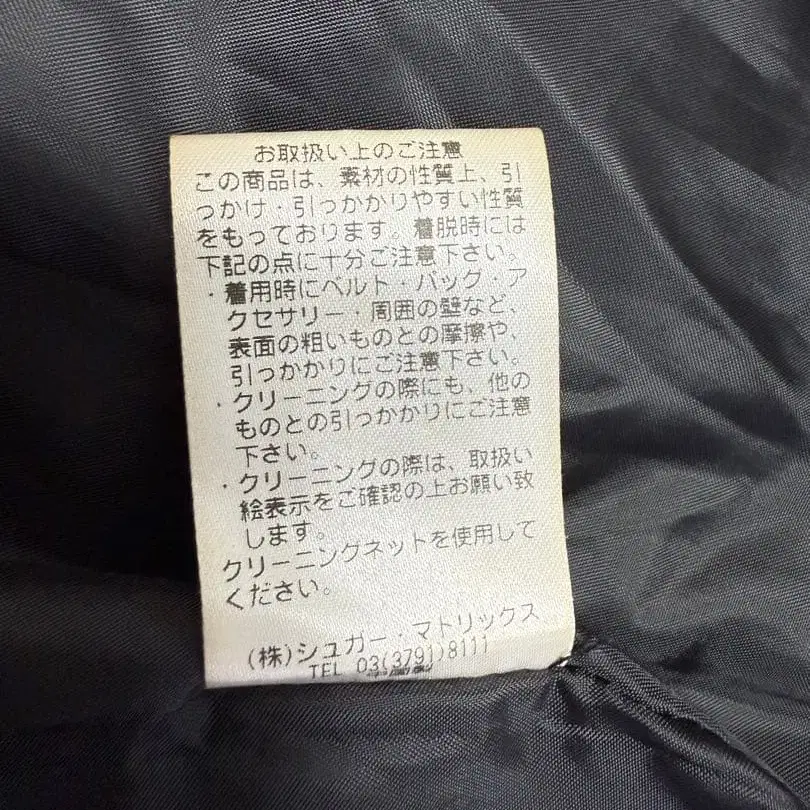 お取扱い上のご注意
この商品は、素材の性質上、引
っかけ・引っかかりやすい性質
をもっております。着脱時には
下記の点に十分ご注意下さい。
・着用時にベルト・バッグ・ア
クセサリー・周囲の壁など、
表面の粗いものとの摩擦や、
引っかかりにご注意下さい。
・クリーニングの際にも、他の
ものとの引っかかりにご注意
下さい。
・クリーニングの際は、取扱い
絵表示をご確認の上お願い致
します。
クリーニングネットを使用して
ください。
(株)シュガー・マトリックス
TEL 03(3791)8111